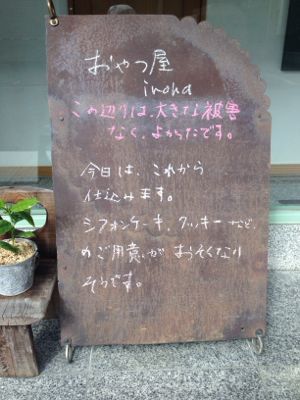 おやつ屋
inoha
この辺りは、大きな被害
なく、よかったです。
今日は、これから
仕込みます。
シフォンケーキ、クッキーなど、
のご用意がおそくなり
そうです。